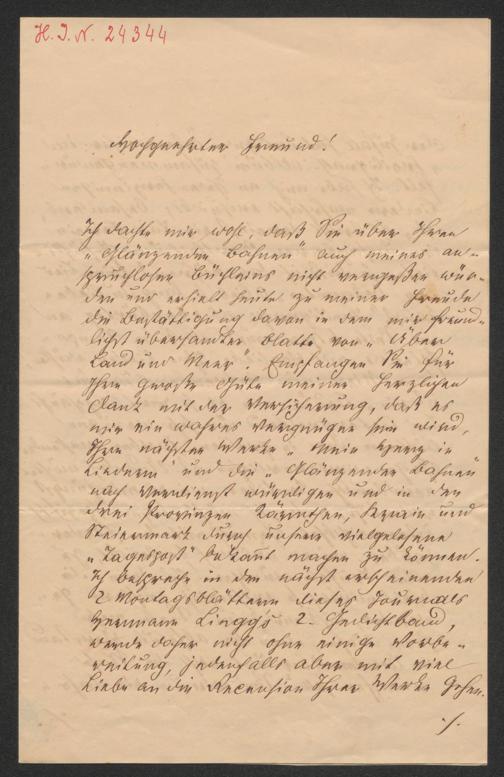 H. I. N. 24344
Hochgeehrter Freund!
Ich dachte mir wol, daß Sie über Ihren
„Glänzenden Bahnen" auch meines an-
spruchlosen Büchleins nicht vergeßen wür-
den und erhielt heute zu meiner Freude
die Bestättigung davon in dem mir freund-
lichst übersandten Blatte von „Über
Land und Meer". Empfangen Sie für
Ihre große Güte meinen herzlichen
Dank mit der Versicherung, daß es
mir ein wahres Vergnügen sein wird,
Ihre nächsten Werke „Mein Herz in
Liedern" und die „Glänzenden Bahnen"
nach Verdienst würdigen und in den
drei Provinzen Kärnthen, Krain und
Steiermark durch unsere vielgelesene
„Tagespost" bekannt machen zu können.
Ich bespreche in den nächst erscheinenden
2 Montagsblättern dieses Journals
Hermann Lingg's 2. Gedichtband,
werde daher nicht ohne einige Vorbe-
reitung, jedenfalls aber mit viel
Liebe an die Recension Ihrer Werke gehen.
./.